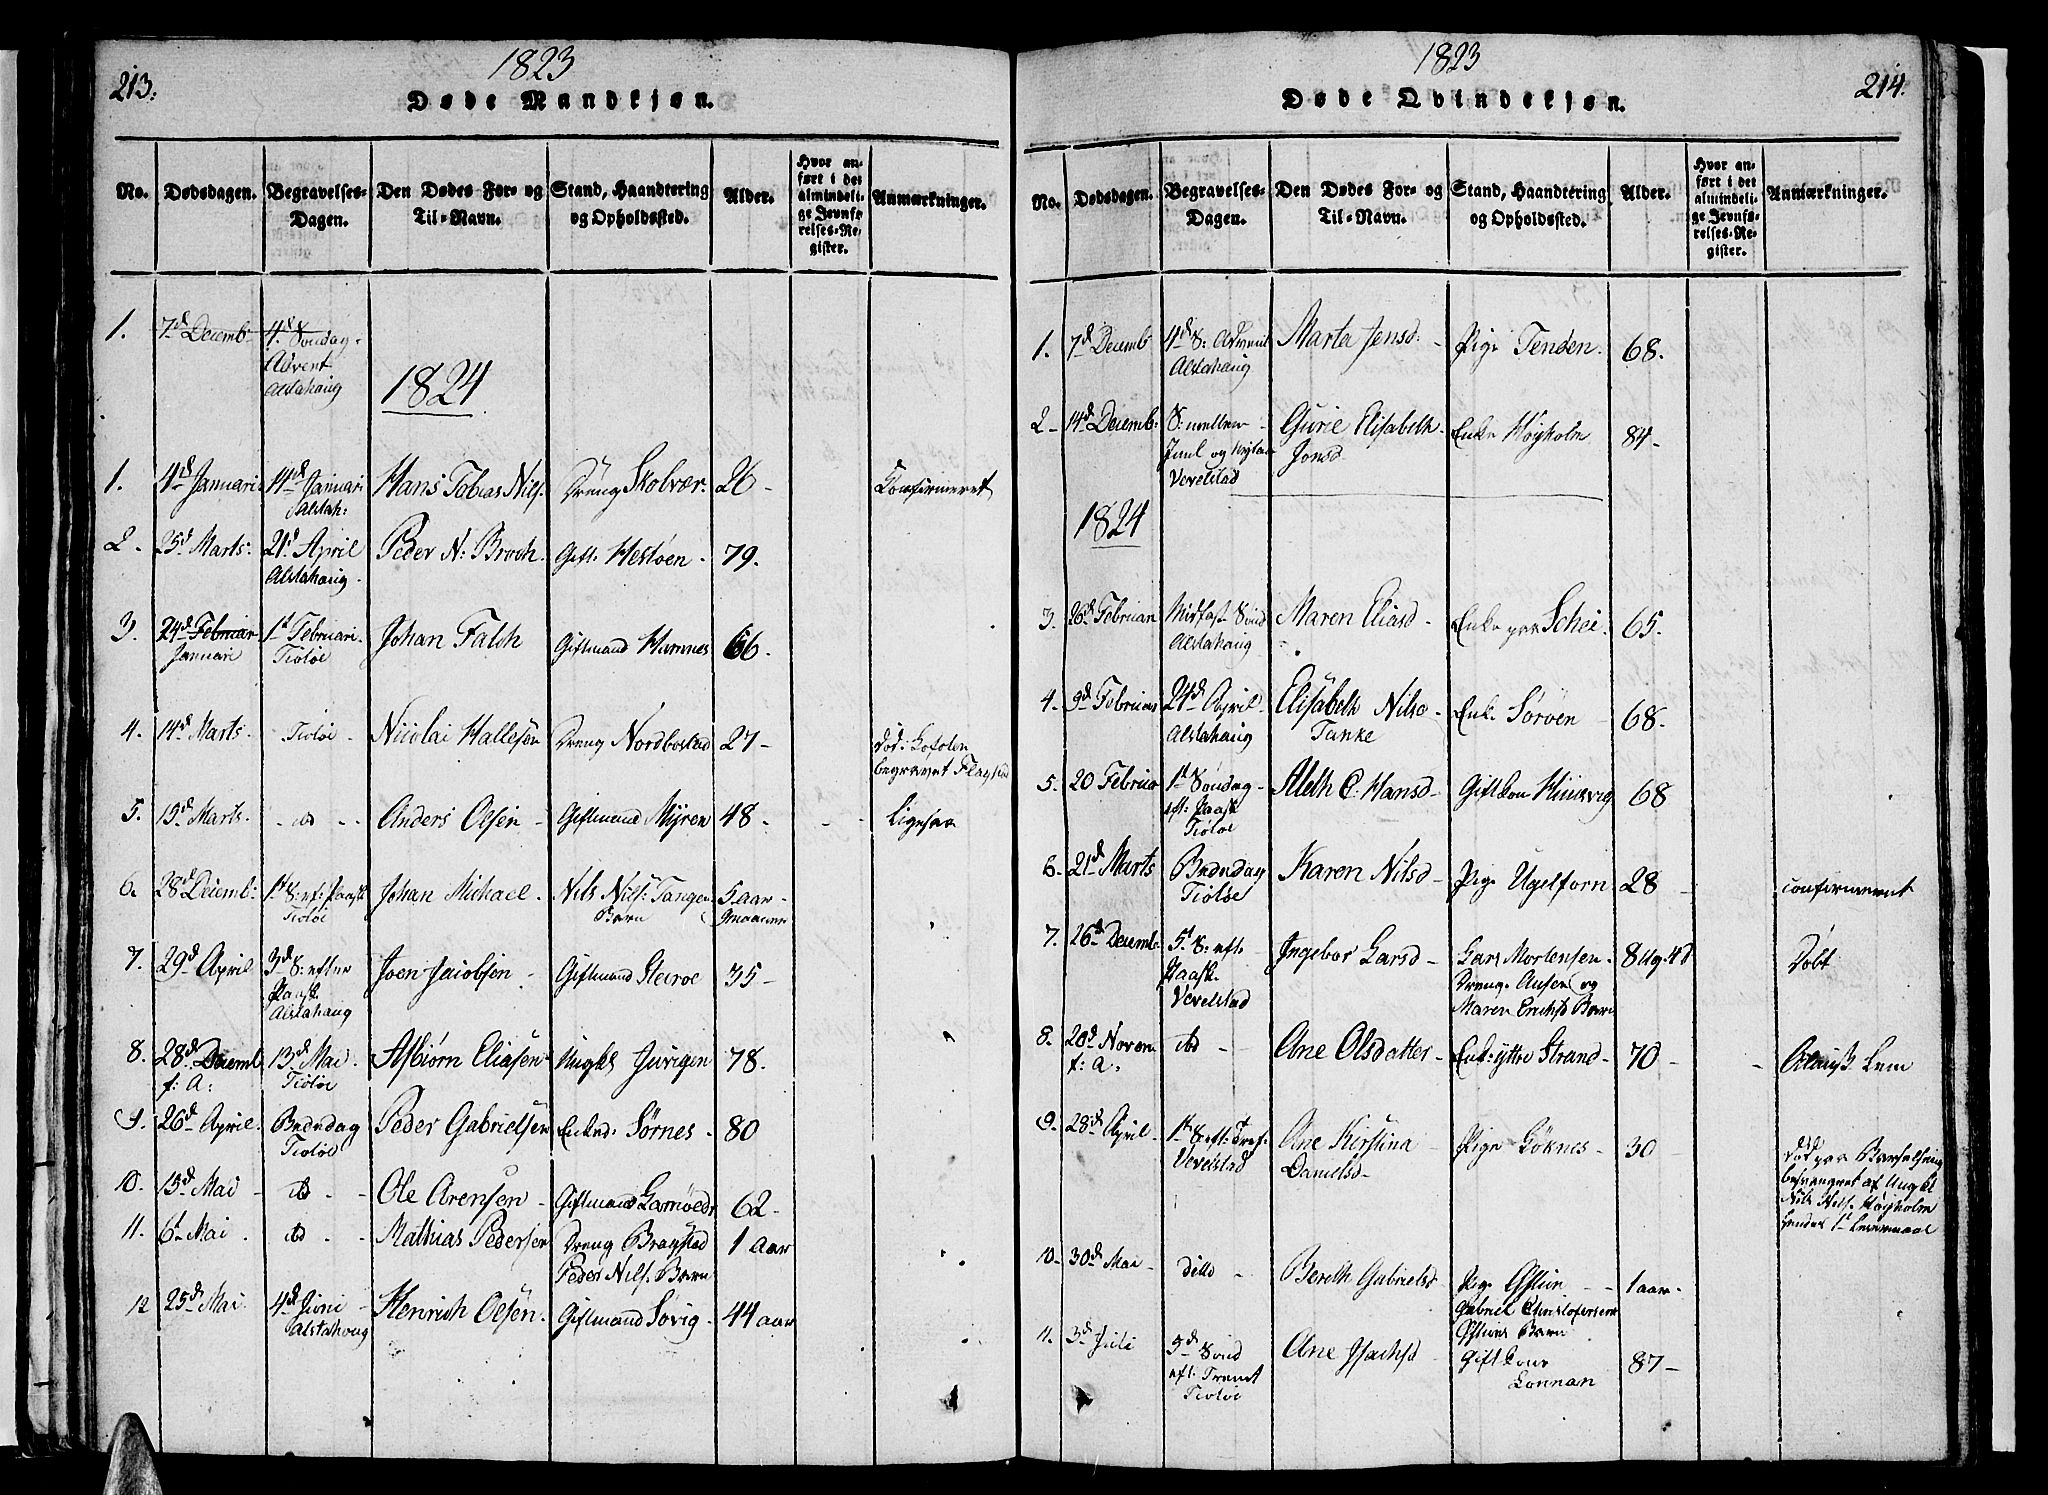 213.
1823
Døde Mandkjøn.
No. Dødsdagen. Begravelses-Dagen. Den Dødes For- og Til-Navn. Stand, Haandtering og Opholdssted. Alder. Hvor anført i det almindelige Jevnførelses-Register. Anmærkninger.
1. 7d Decemb 4d Søndag Advent Alstahaug
1824
1. 4d Januari 14d Januari Alstah: Hans Tobias Nils. Dreng Skolvær. 26 - Confirmeret
2. 25d Marts. 21d April Alstahaug. Peder N: Broch. Gift. Hestøen. 79.
3. 24d Februar Januari 1t Februari. Tiøtøe Johan Falch Giftmand Hamnes 66.
4. 14d Marts. Tiøtøe - Nicolai Hallesøn Dreng Nordbostad 27 - død i Lofoten begravet Flagstad
5. 15d Marts. do - Anders Olsen - Giftmand Myren 48 - Ligesaa
6. 28d Decemb: 1t S: ef: Paask Tiøtøe Johan Michael. Nils Nils: Tangen Barn 5 aar 9 maaneder
7. 29d April 3d S: efter Paask. Alstahaug Joen Jacobsen - Giftmand Steiroe 35 -
8. 28d Decemb f: A: 13d Mai Tiøtøe Asbiørn Eliasen Ungkl Jurigen 78.
9. 26d April. Bededag Tiøtøe Peder Gabrielsen Enkem: Sørnes - 80
10. 15d Mai - do - Ole Arensen - Giftmand 62 -
11. 6t Mai. do - Mathias Pedersen Dreng Bragstad Peder Nils. Barn 1 aar
12 25d Mai. 4d Juni Alstahoug Henrich Olsen. Giftmand Søvig. 44 aar
1823
214.
Døde Qvindekjøn.
No. Dødsdagen. Begravelses-Dagen. Den Dødes For- og Til-Navn. Stand, Haandtering og Opholdssted. Alder. Hvor anført i det almindelige Jevnførelses-Register. Anmærkninger.
1. 7d Decemb 4d S: Advent Alstahaug Marta Jensd. - Pige Tenden. 68.
2 - 14d Decemb: S: mellem Juul og Nytaar Vevelstad Gurie Elisabeth Jonsd. Enke Høyholm 84 -
1824
3. 26d Februari Midfast Sønd Alstahaug Maren Eliasd - Enke paa Schei. 65.
4. 9d Februar 24d April Alstahaug Elisabeth Nilsd Tanke Enke Sørøen 68.
5. 20 Februar 1t Søndag eft: Paask Tiøtøe Aleth C. Hansd - Gift Kone 68
6. 21d Marts Bededag Tiøtøe Karen Nilsd - Pige Ugelforn 28 - confirmeret
7. 26d Decemb. 5t S: eft. Paask. Vevelstad Ingebor Larsd - Lars Mortensen Dreng. Ausen og Maren Ericksd Barn 8 Ug. 4d Døbt
8. 20d Novem f: A. do - Ane Olsdatter - Enke ytre Strand - 70 - Almiss Lem
9. 28d April. 1t S: eft: Tref. Vevelstad Ane Kirstina Danielsd - Pige Løknes - 30 - død paa Barselseng besvangret af Ungkl Nils Nils. Høyholm hendes 1t Leiermaal
10 - 30d Mai - ditto - Bereth Gabrielsd Pige Gabriel Christofersens Barn 1 aar.
11. 3d Juli 3d Sønd eft. Trenit Tiøtøe Ane Isachsd Gift Kone Lonnan 87 -